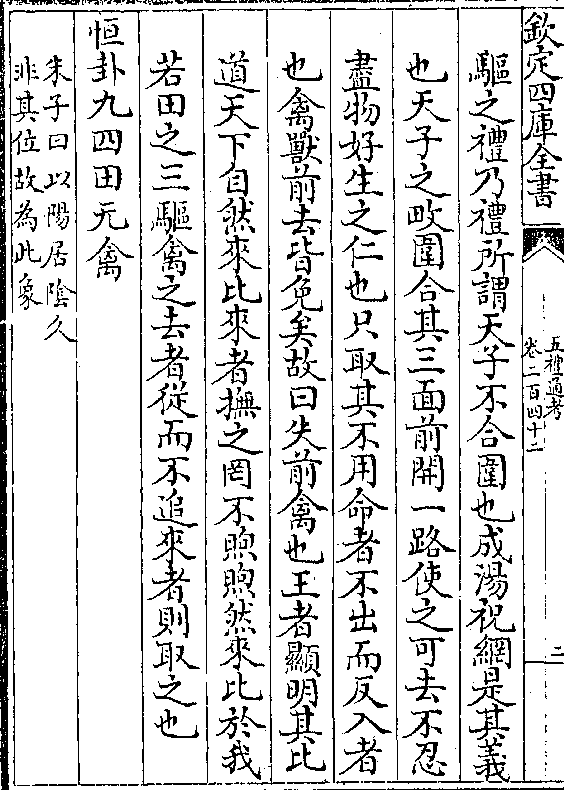 欽定四庫全書
五禮通考
卷二百四十二
二
驅之禮乃禮所謂天子不合圍也成湯祝網是其義
也天子之畋圍合其三面前開一路使之可去不忍
盡物好生之仁也只取其不用命者不出而反入者
也禽獸前去皆免矣故曰失前禽也王者顯明其比
道天下自然來比來者撫之固不煦煦然來比於我
若田之三驅禽之去者從而不追來者則取之也
恒卦九四田无禽
朱子曰以陽居陰久
非其位故為此象